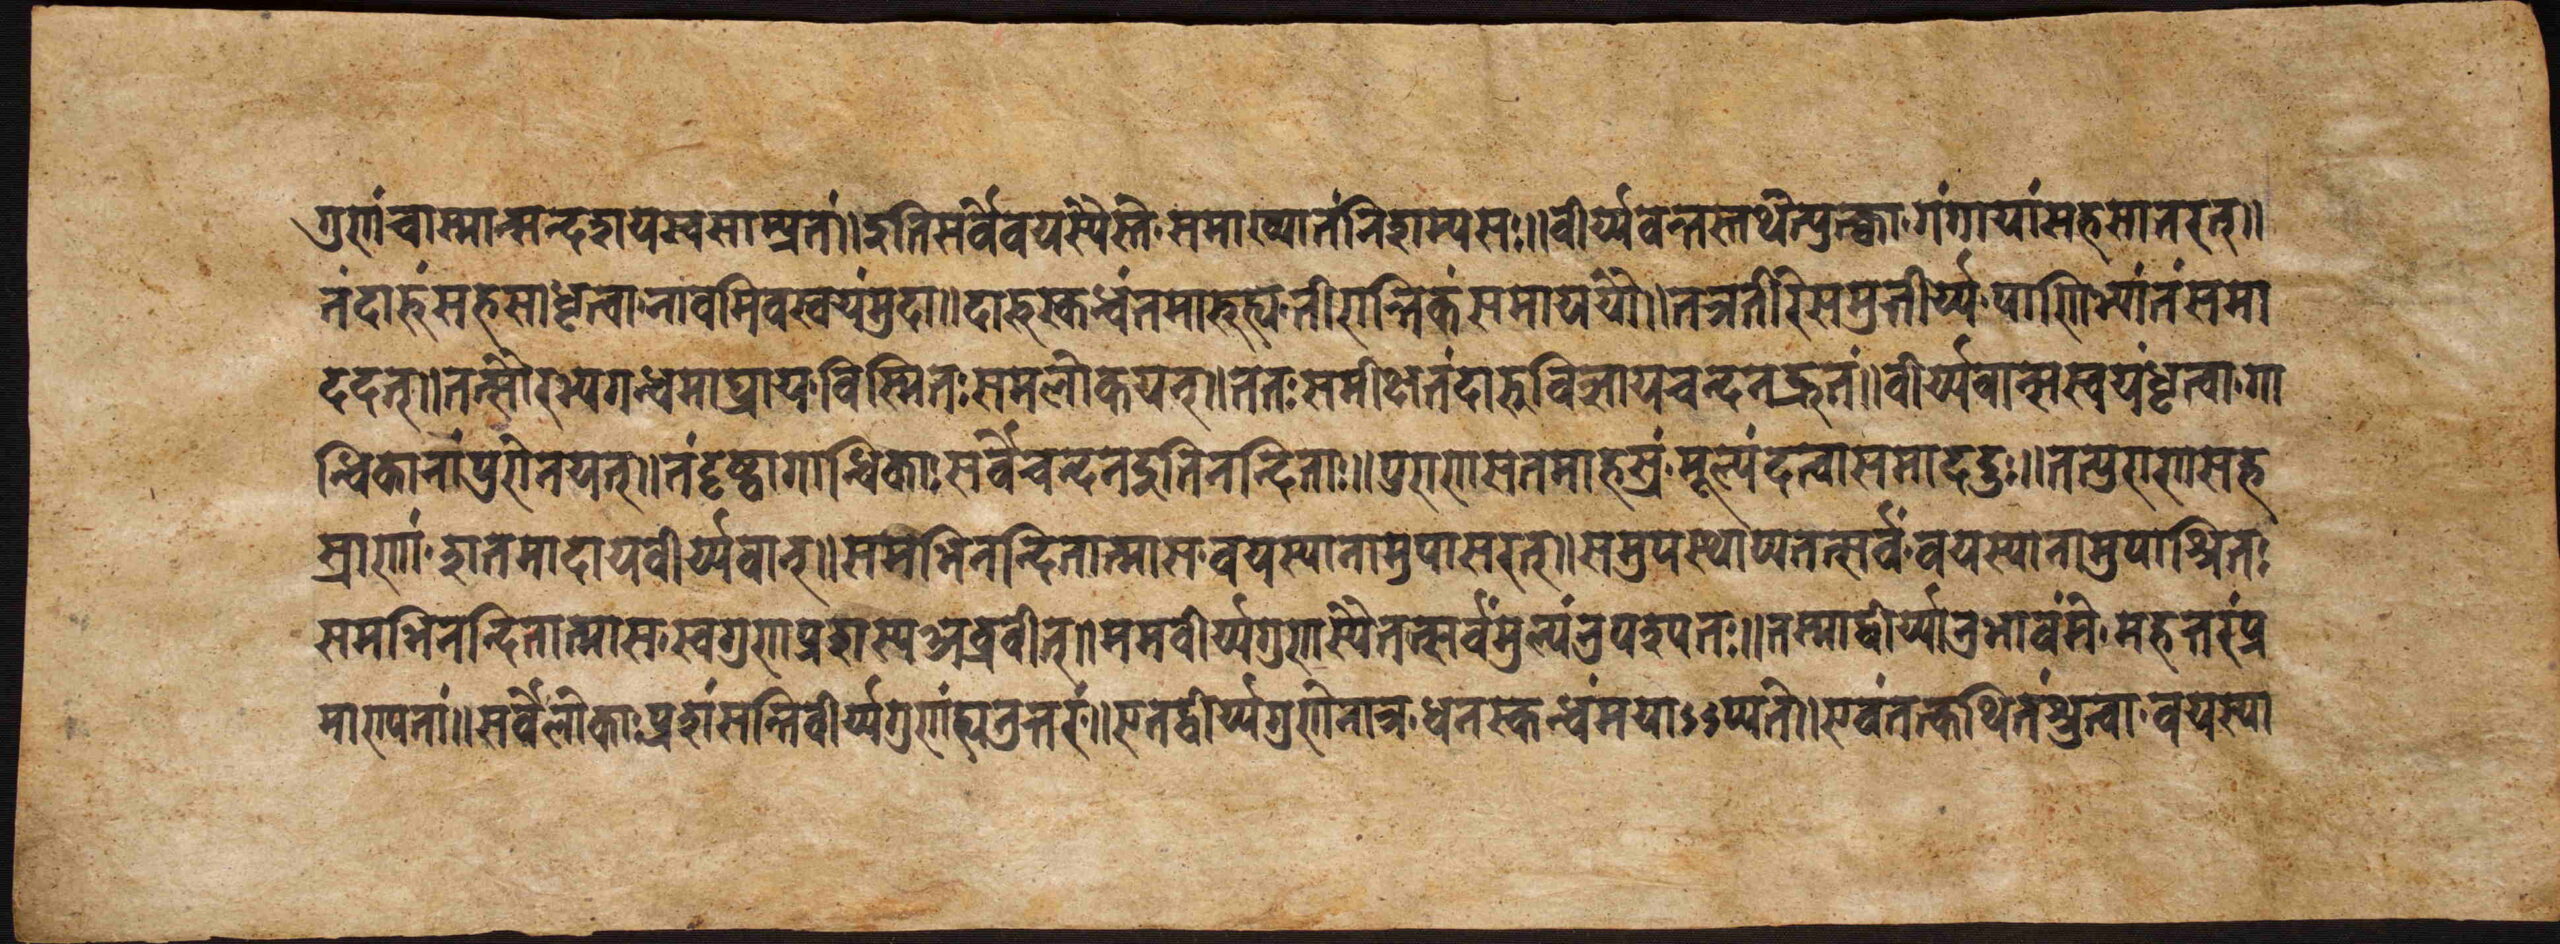 गुणं चास्मान्सन्दर्शयस्व साम्प्रतं॥ इति सर्वैर्वयस्यैस्तैः समाख्यातं निशम्य सः॥ वीर्य्यवन्तस्तथेत्युक्त्वा गंगायां सहसातरत्॥
तं दारुं सहसा धृत्वा नावमिव स्वयं मुदा॥ दारुस्कन्धं तमारुह्य तीरान्तिकं समाययौ॥ तत्र तीरे समुत्तीर्य्य पाणिभ्यां तं समा
ददत्॥ तत्सौरभ्यगन्धमाघ्राय विस्मितः समलोकयत्॥ ततः समीक्ष तं दारु विज्ञाय चन्दनद्रुतं॥ वीर्य्यवान्स स्वयं धृत्वा गा
न्धिकानां पुरोनयत्॥ तं दृष्ट्वा गान्धिकाः सर्वे चन्दनद्रुतिनन्दिताः॥ पुराणसतमाहस्रं मूल्यं दत्वा समाददुः॥ तत्पुराणसह
स्राणां शतमादाय वीर्य्यवान्॥ समभिनन्दितात्मा स वयस्यानामुपासरत्॥ समुपस्थाप्य तत्सर्वं वयस्यानामुपाश्रितः
समभिनन्दितात्मा स स्वगुणप्रशस्य अब्रवीत्॥ मम वीर्य्यगुणस्यैतत्सर्वं मुल्यं
माणपतां॥ सर्वे लोकाः प्रशंसन्ति वीर्य्यगुणं ह्यनुत्तरं॥ एतद्वीर्य्यगुणेनात्र धनस्कन्धं मयाऽऽप्यते॥ एवं तत्कथितं श्रुत्वा वयस्या